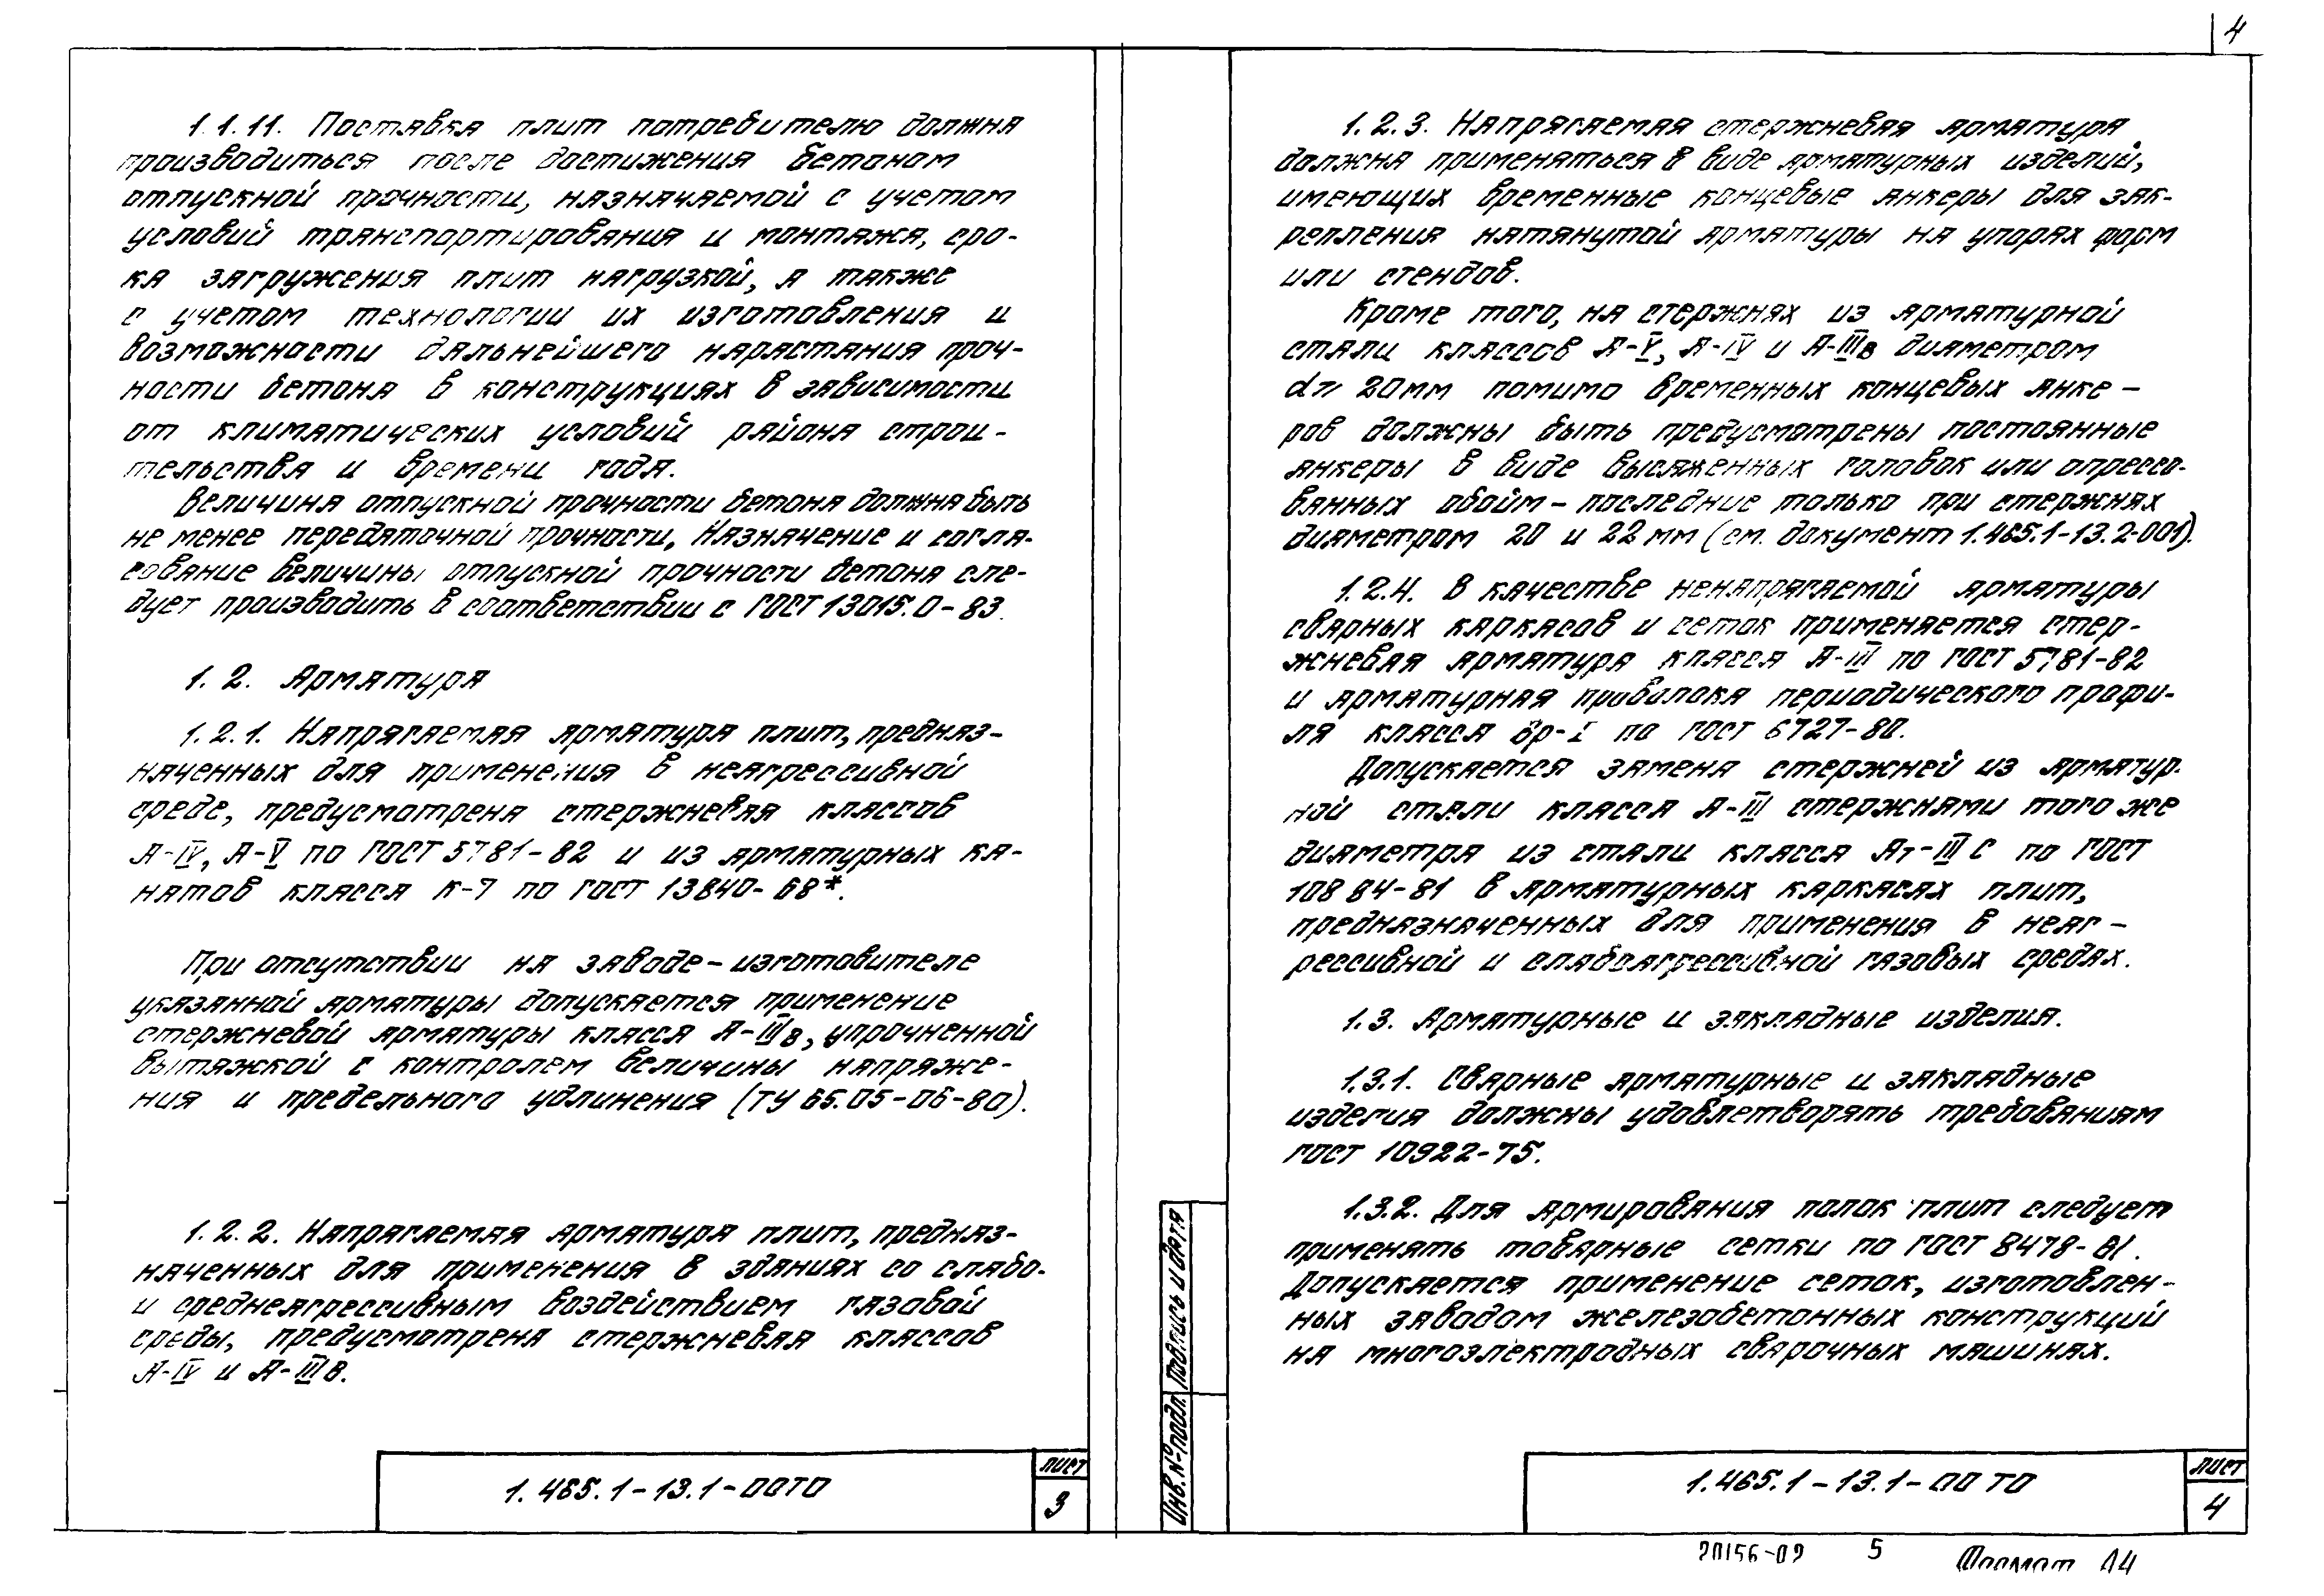 4
1.1.11. Поставка плит потребителю должна
производиться после достижения бетоном
отпускной прочности, назначаемой с учетом
условий транспортирования и монтажа, сро-
ка загружения плит нагрузкой, а также
с учетом технологии их изготовления и
возможности дальнейшего нарастания проч-
ности бетона в конструкциях в зависимости
от климатических условий района строи-
тельства и времени года.
Величина отпускной прочности бетона должна быть
не менее передаточной прочности. Назначение и согла-
сование величины отпускной прочности бетона сле-
дует производить в соответствии с ГОСТ 13015.0-83.
1.2. Арматура
1.2.1. Напрягаемая арматура плит, предназ-
наченных для применения в неагрессивной
среде, предусмотрена стержневая классов
А-IV, А-V по ГОСТ 5781-82 и из арматурных ка-
натов класса К-7 по ГОСТ 13840-68*.
При отсутствии на заводе-изготовителе
указанной арматуры допускается применение
стержневой арматуры класса А-IIIв, упрочненной
вытяжкой с контролем величины напряже-
ния и предельного удлинения (ТУ 65.05-06-80).
1.2.2. Напрягаемая арматура плит, предназ-
наченных для применения в зданиях со слабо-
и среднеагрессивным воздействием газовой
среды, предусмотрена стержневая классов
А-IV и А-IIIв.
1.465.1-13.1-00ТО
лист
3
1.2.3. Напрягаемая стержневая арматура
должна применяться в виде арматурных изделий,
имеющих временные концевые анкеры для зак-
репления натянутой арматуры на упорах форм
или стендов.
Кроме того, на стержнях из арматурной
стали классов А-V, А-IV и А-IIIв диаметром
d⩾20мм помимо временных концевых анке-
ров должны быть предусмотрены постоянные
анкеры в виде высаженных головок или опрессо-
ванных обойм - последние только при стержнях
диаметром 20 и 22 мм (см. документ 1.465.1-13.2-001).
1.2.4. В качестве ненапрягаемой арматуры
сварных каркасов и сеток применяется стер-
жневая арматура класса А-III по ГОСТ 5781-82
и арматурная проволока периодического профи-
ля класса Вр-I по ГОСТ 6727-80.
Допускается замена стержней из арматур-
ной стали класса А-III стержнями того же
диаметра из стали класса Ат-IIIС по ГОСТ
10884-81 в арматурных каркасах плит,
предназначенных для применения в неаг-
рессивной и слабоагрессивной газовых средах.
1.3. Арматурные и закладные изделия.
1.3.1. Сварные арматурные и закладные
изделия должны удовлетворять требованиям
ГОСТ 10922-75.
1.3.2. Для армирования полок плит следует
применять товарные сетки по ГОСТ 8478-81.
Допускается применение сеток, изготовлен-
ных заводом железобетонных конструкций
на многоэлектродных сварочных машинах.
Инв.№подл. Подпись и дата
1.465.1-13.1-00 ТО
лист
4
20156-02 5 Формат А4